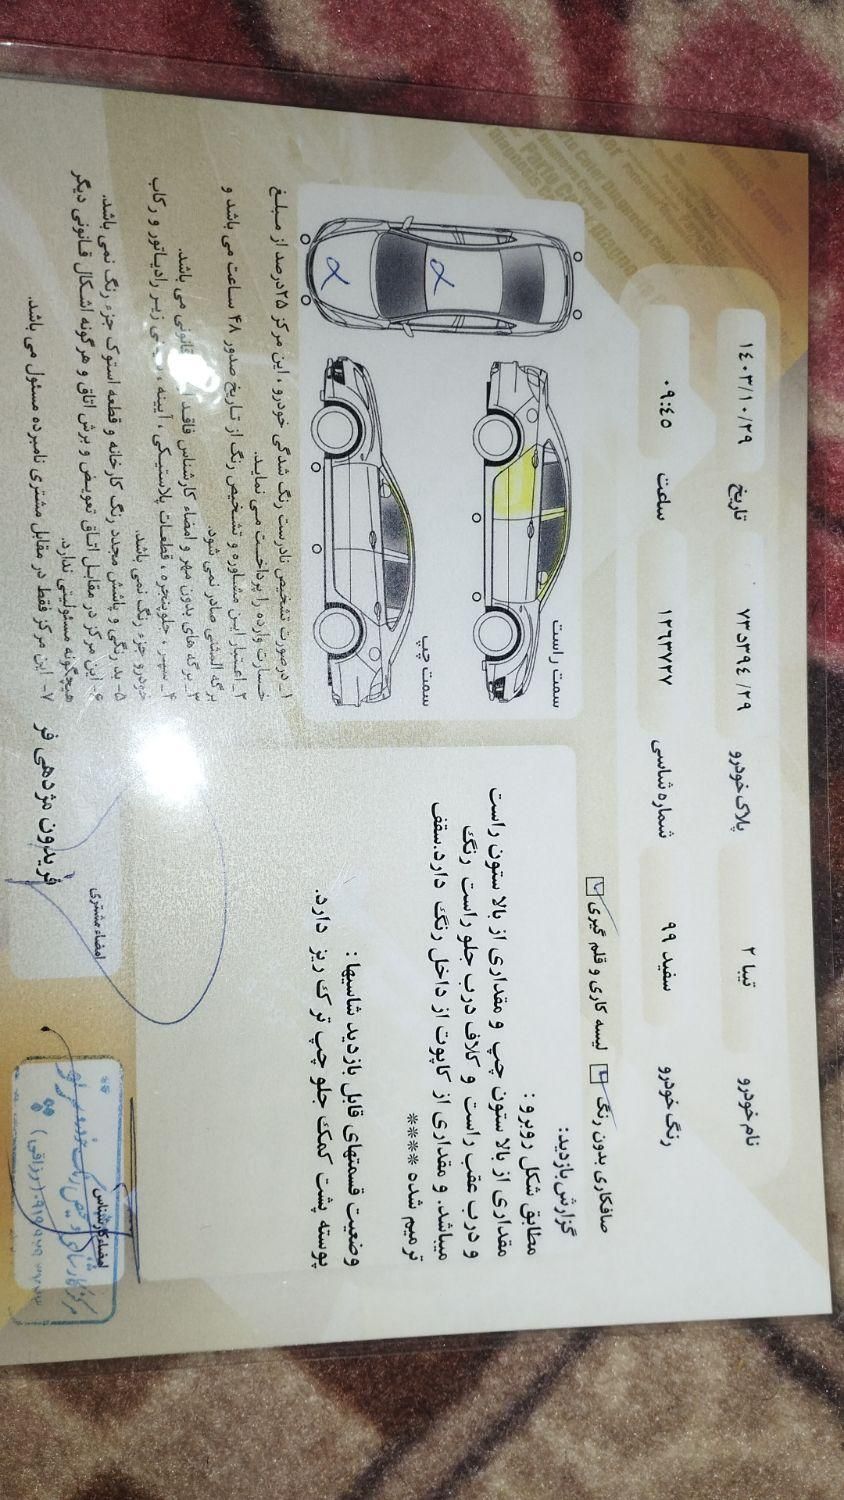 نام خودرو تیبا ۲ پلاک خودرو ۲۹/ ۳۹۴د۷۳ تاریخ ۱٤۰۳/۱۰/۲۹
رنگ خودرو سفید ۹۹ شماره شاسی ۱۲٦۳۷۲۷ ساعت ۰۹:٤٥
صافکاری بدون رنگ لیسه کاری و قلم گیری
گزارش بازدید:
مطابق شکل روبرو :
مقداری از بالا ستون چپ و مقداری از بالا ستون راست
و درب عقب راست و کلاف درب جلو راست رنگ
میباشد. و مقداری از کاپوت از داخل رنگ دارد.سقف
ترمیم شده ****
وضعیت قسمتهای قابل بازدید شاسیها :
پوسته پشت کمک جلو چپ ترک ریز دارد.
سمت راست
سمت چپ
۱_ درصورت تشخیص نادرست رنگ شدگی خودرو ، این مرکز ۲۵درصد از مبلغ
خسارت وارده را پرداخت می نماید.
۲_ اعتبار این مشاوره و تشخیص رنگ از تاریخ صدور ۴۸ ساعت می باشد و
برگه المثنی صادر نمی شود.
۳_ برگه های بدون مهر و امضاء کارشناس فاقد قانونی می باشد.
۴_ سپر ، جلوپنجره ، قطعات پلاستیکی ، آیینه ، زیر رادیاتور و رکاب
خودرو جزء رنگ نمی باشد.
۵- بد رنگی و پاشش مجدد رنگ کارخانه و قطعه استوک جزء رنگ نمی باشد.
۶- این مرکز در مقابل اتاق تعویض و برش اتاق و هرگونه اشکال قانونی دیگر
هیچگونه مسئولیتی ندارد.
۷- این مرکز فقط در مقابل مشتری نامبرده مسئول می باشد.
امضاء مشتری
فریدون مژدهی فر
امضاء کارشناس